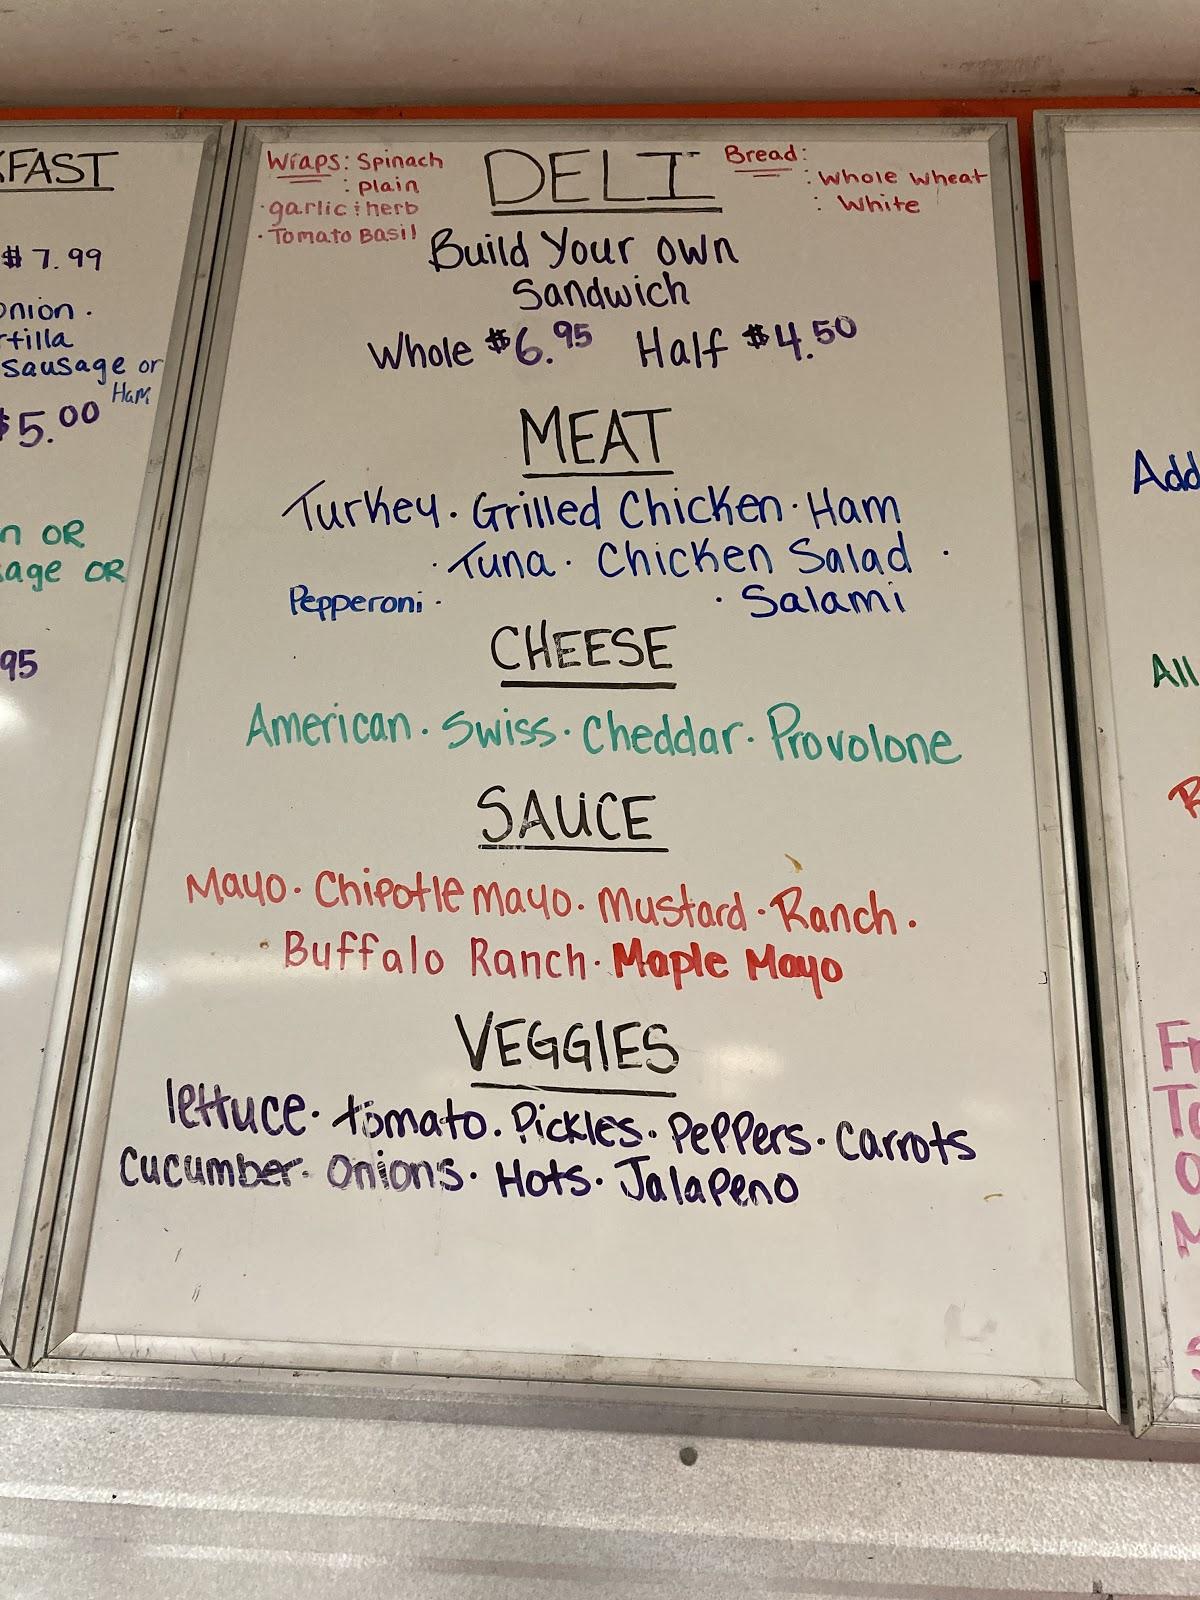 KFAST
$7.99
onion.
rtilla
sausage or
Ham
$5.00
n OR
sage OR
95
Wraps: Spinach
: plain
· garlic & herb
· Tomato Basil
DELI
Bread:
: Whole Wheat
: White
Build Your own
Sandwich
Whole $6.95 Half $4.50
MEAT
Turkey · Grilled Chicken · Ham
· Tuna · Chicken Salad ·
Pepperoni · · Salami
CHEESE
American · Swiss · Cheddar · Provolone
SAUCE
Mayo · Chipotle mayo · Mustard · Ranch ·
Buffalo Ranch · Maple Mayo
VEGGIES
lettuce · tomato · Pickles · Peppers · Carrots
Cucumber · Onions · Hots · Jalapeno
Add
All
R
Fr
To
O
M